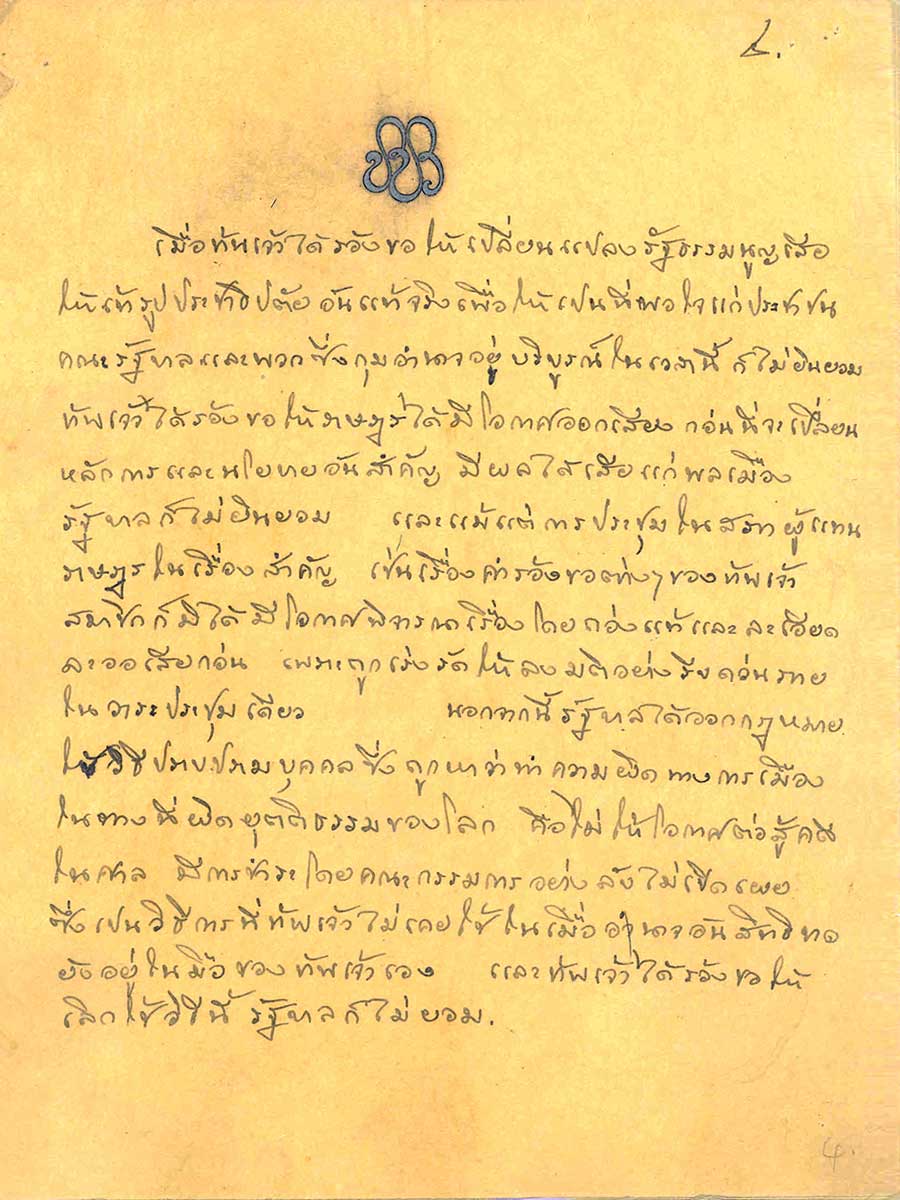 ๔.
เมื่อข้าพเจ้าได้ร้องขอให้เปลี่ยนแปลงรัฐธรรมนูญเสีย
ให้เข้ารูปประชาธิปตัยอันแท้จริงเพื่อให้เปนที่พอใจแก่ประชาชน
คณะรัฐบาลและพวกซึ่งกุมอำนาจอยู่บริบูรณ์ในเวลานี้ ก็ไม่ยินยอม
ข้าพเจ้าได้ร้องขอให้ราษฎรได้มีโอกาศออกเสียง ก่อนที่จะเปลี่ยน
หลักการและนโยบายอันสำคัญ มีผลได้เสียแก่พลเมือง
รัฐบาลก็ไม่ยินยอม และแม้แต่การประชุมในสภาผู้แทน
ราษฎรในเรื่องสำคัญ เช่นเรื่องคำร้องขอต่างๆของข้าพเจ้า
สมาชิกก็มิได้มีโอกาศพิจารณาเรื่องโดยถ่องแท้และละเอียด
ละออเสียก่อน เพราะถูกเร่งรัดให้ลงมติอย่างรีบด่วนภาย
ในวาระประชุมเดียว นอกจากนี้รัฐบาลได้ออกกฎหมาย
ใช้วิธีปราบปรามบุคคลซึ่งถูกหาว่าทำความผิดทางการเมือง
ในทางที่ผิดยุตติธรรมของโลก คือไม่ให้โอกาศต่อสู้คดี
ในศาล มีการชำระโดยคณะกรรมการอย่างลับไม่เปิดเผย
ซึ่งเปนวิธีการที่ข้าพเจ้าไม่เคยใช้ในเมื่ออำนาจอันสิทธิขาด
ยังอยู่ในมือของข้าพเจ้าเอง และข้าพเจ้าได้ร้องขอให้
เลิกใช้วิธีนี้ รัฐบาลก็ไม่ยอม.